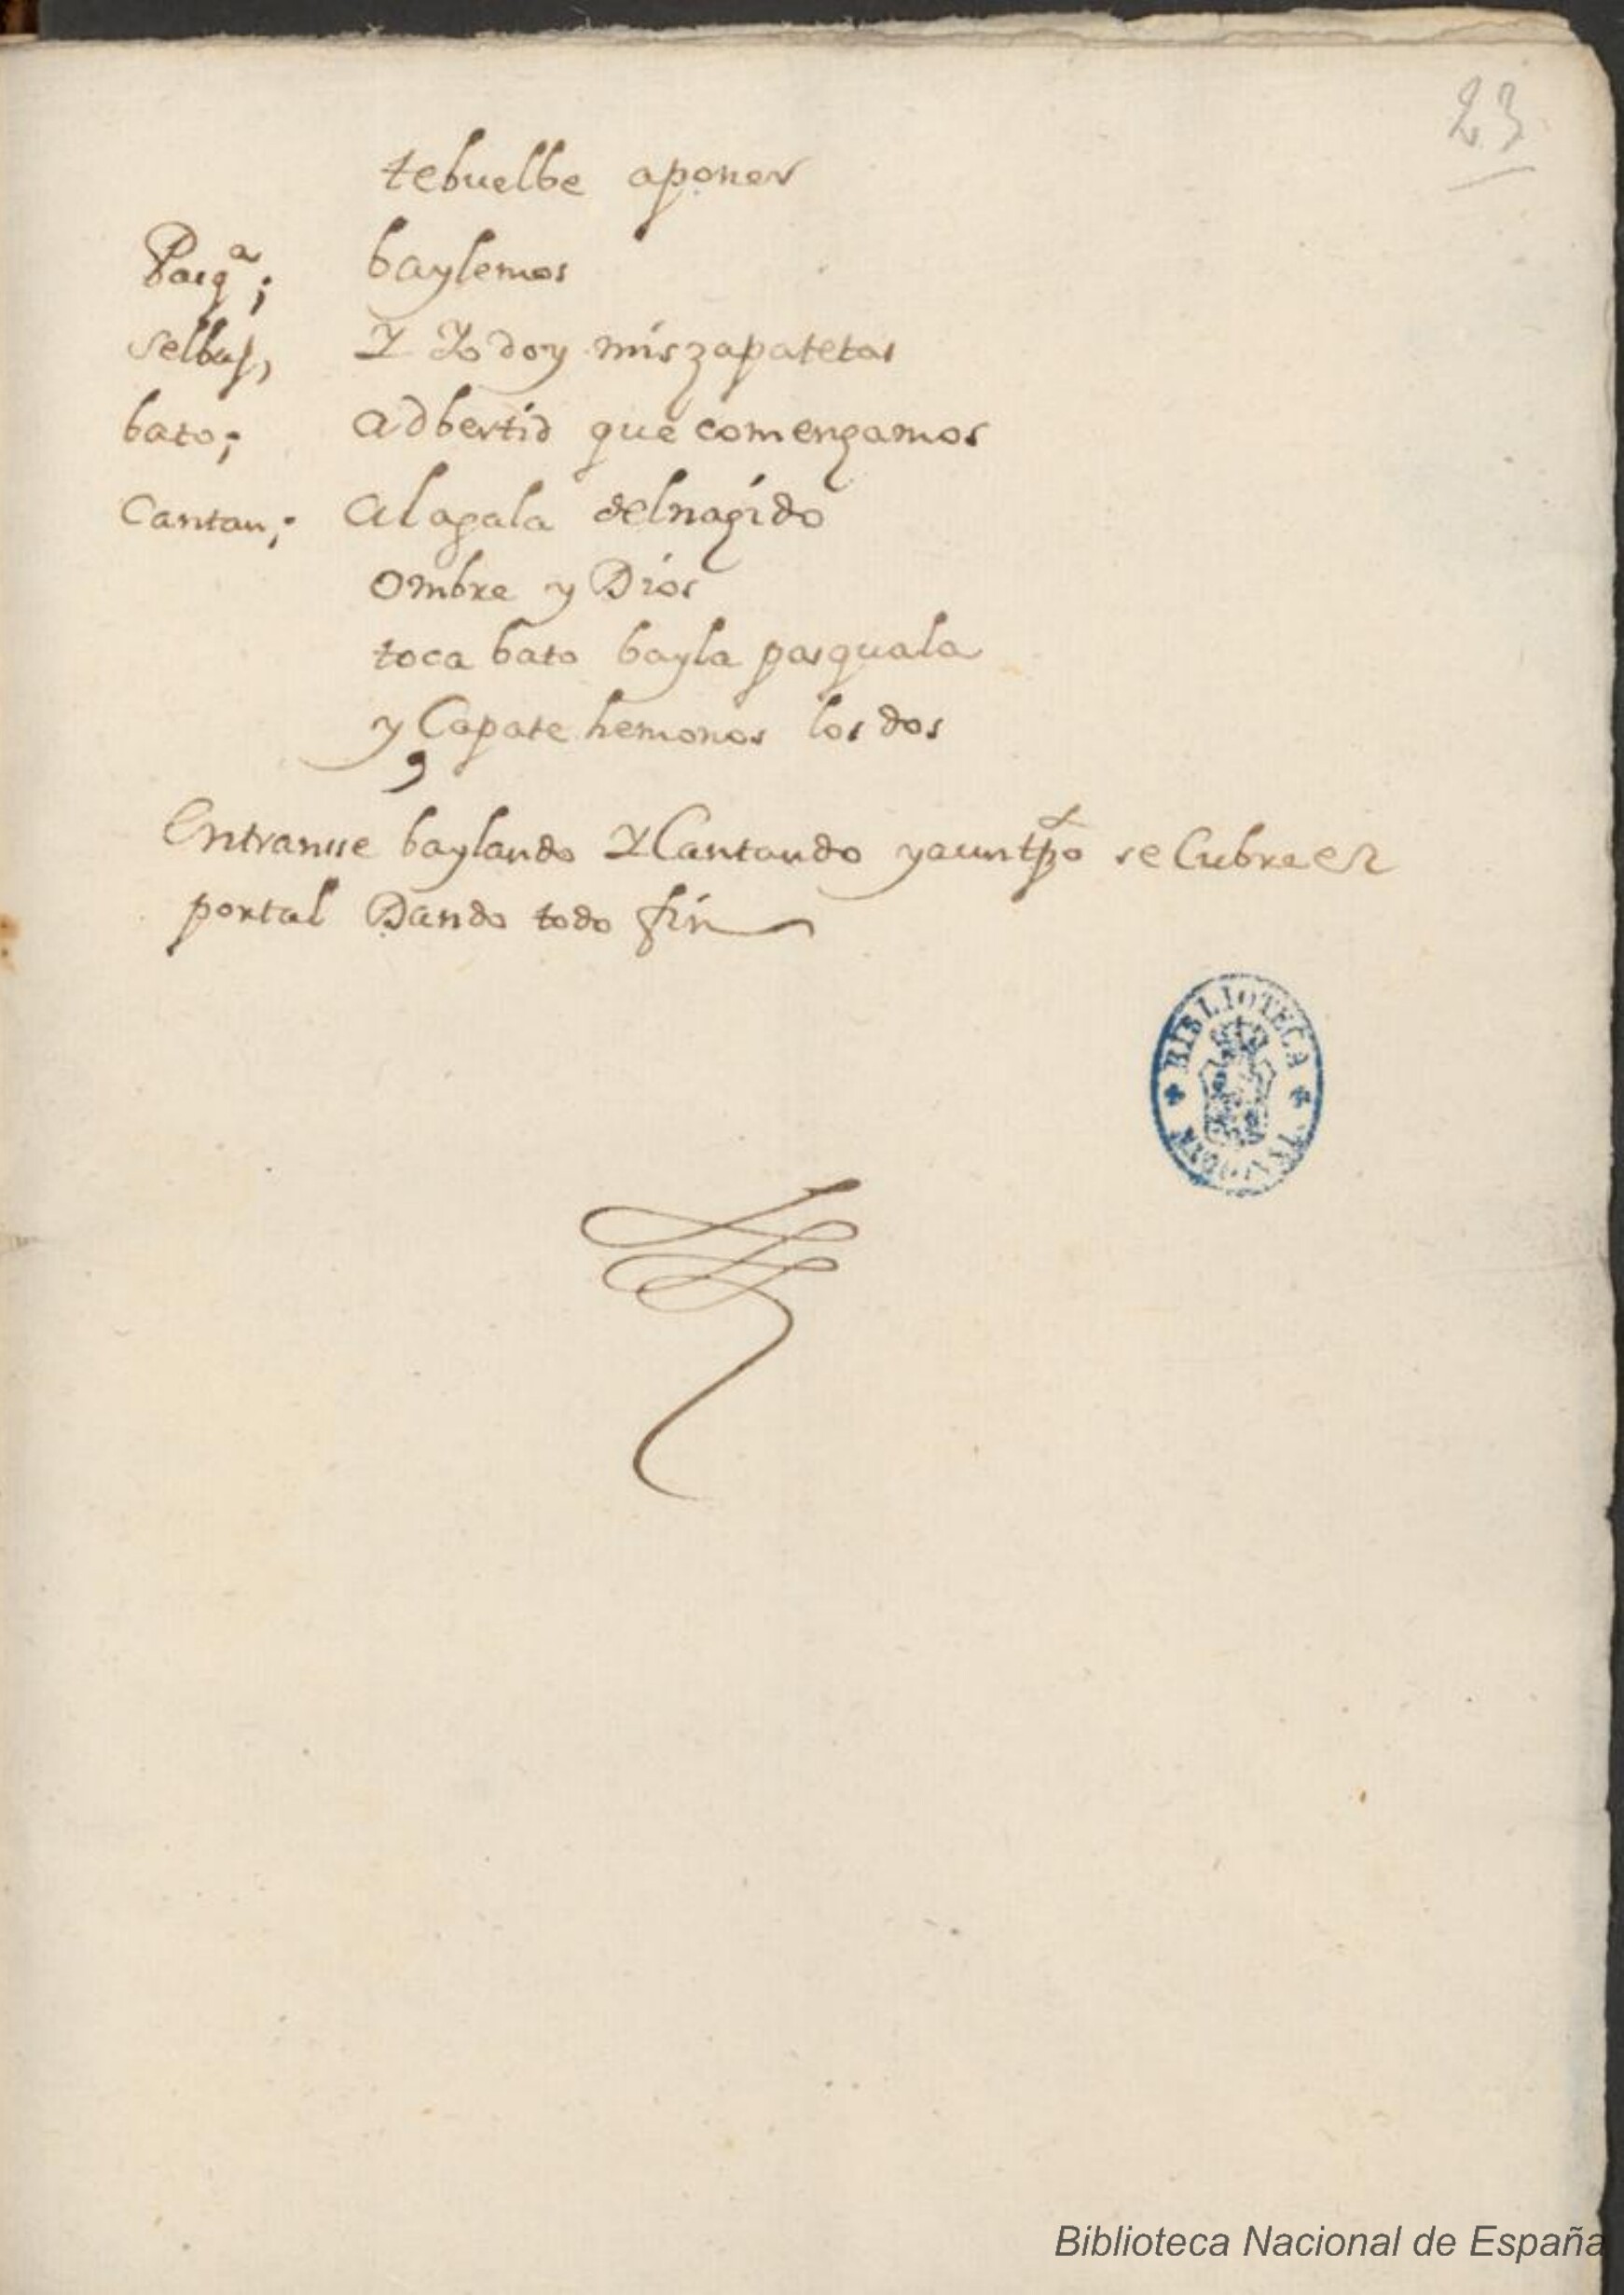 23
tebuelbe aponer
Pasqª; baylemos
selbaJ, Y Yo doy mis zapatetas
bato; adbertid que comenzamos
Cantan; Alagala delnaçido
ombre y Dios
toca bato bayla pasquala
y Çapate hemonos los dos
Entranse baylando Y Cantando yauntpo se Cubre el
portal Dando todo fin
BIBLIOTECA NACIONAL
Biblioteca Nacional de España